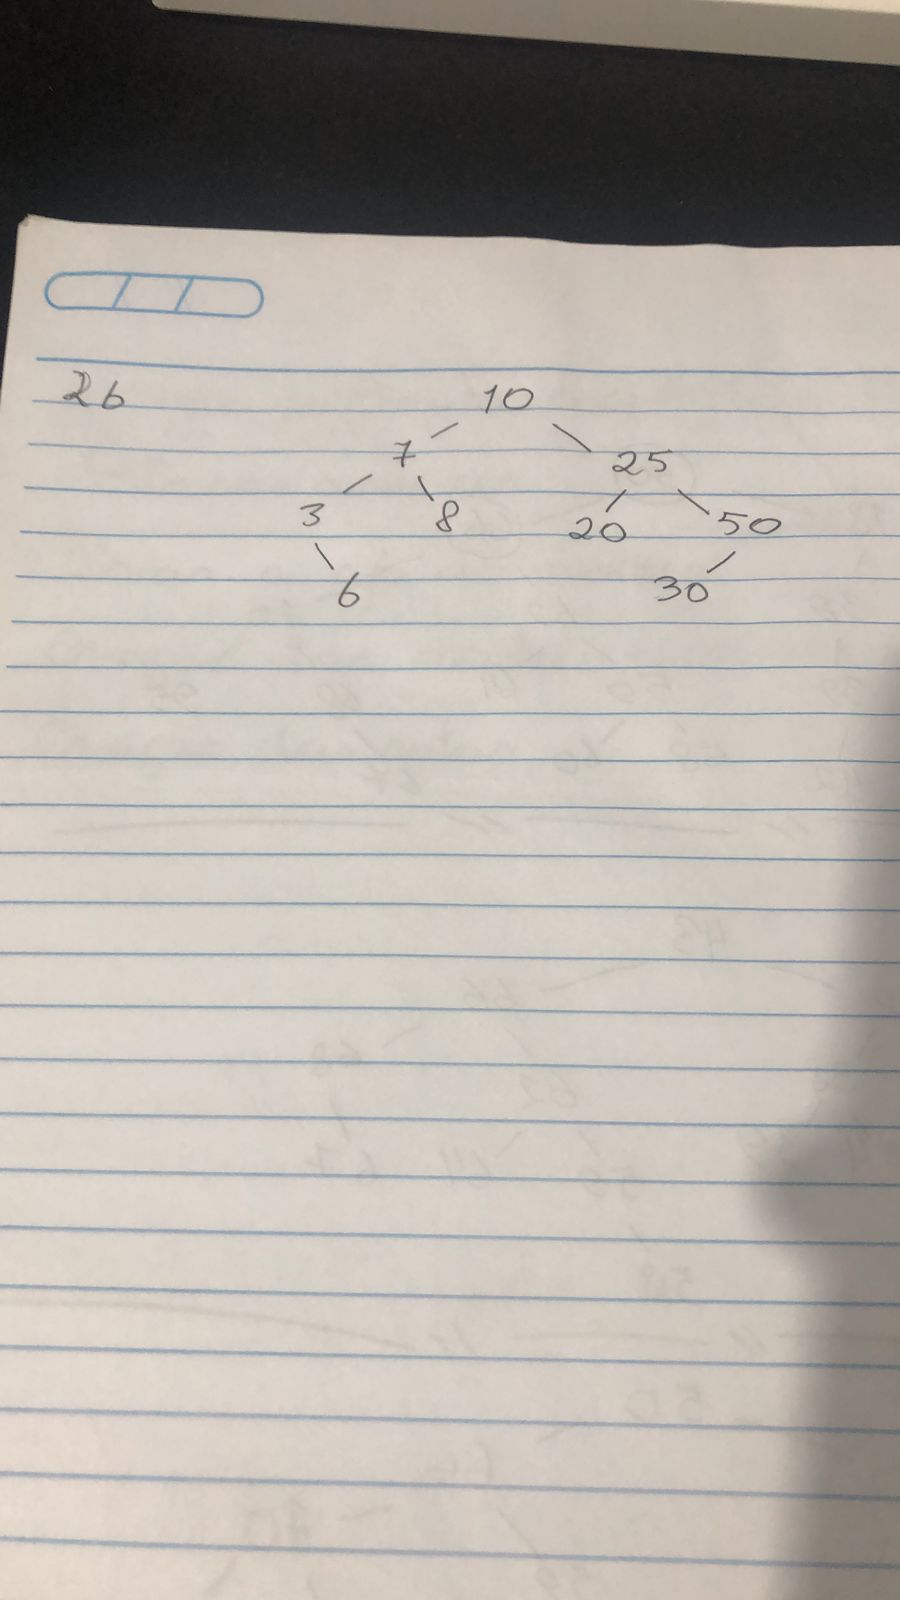 26 10
7 25
3 8 20 50
6 30